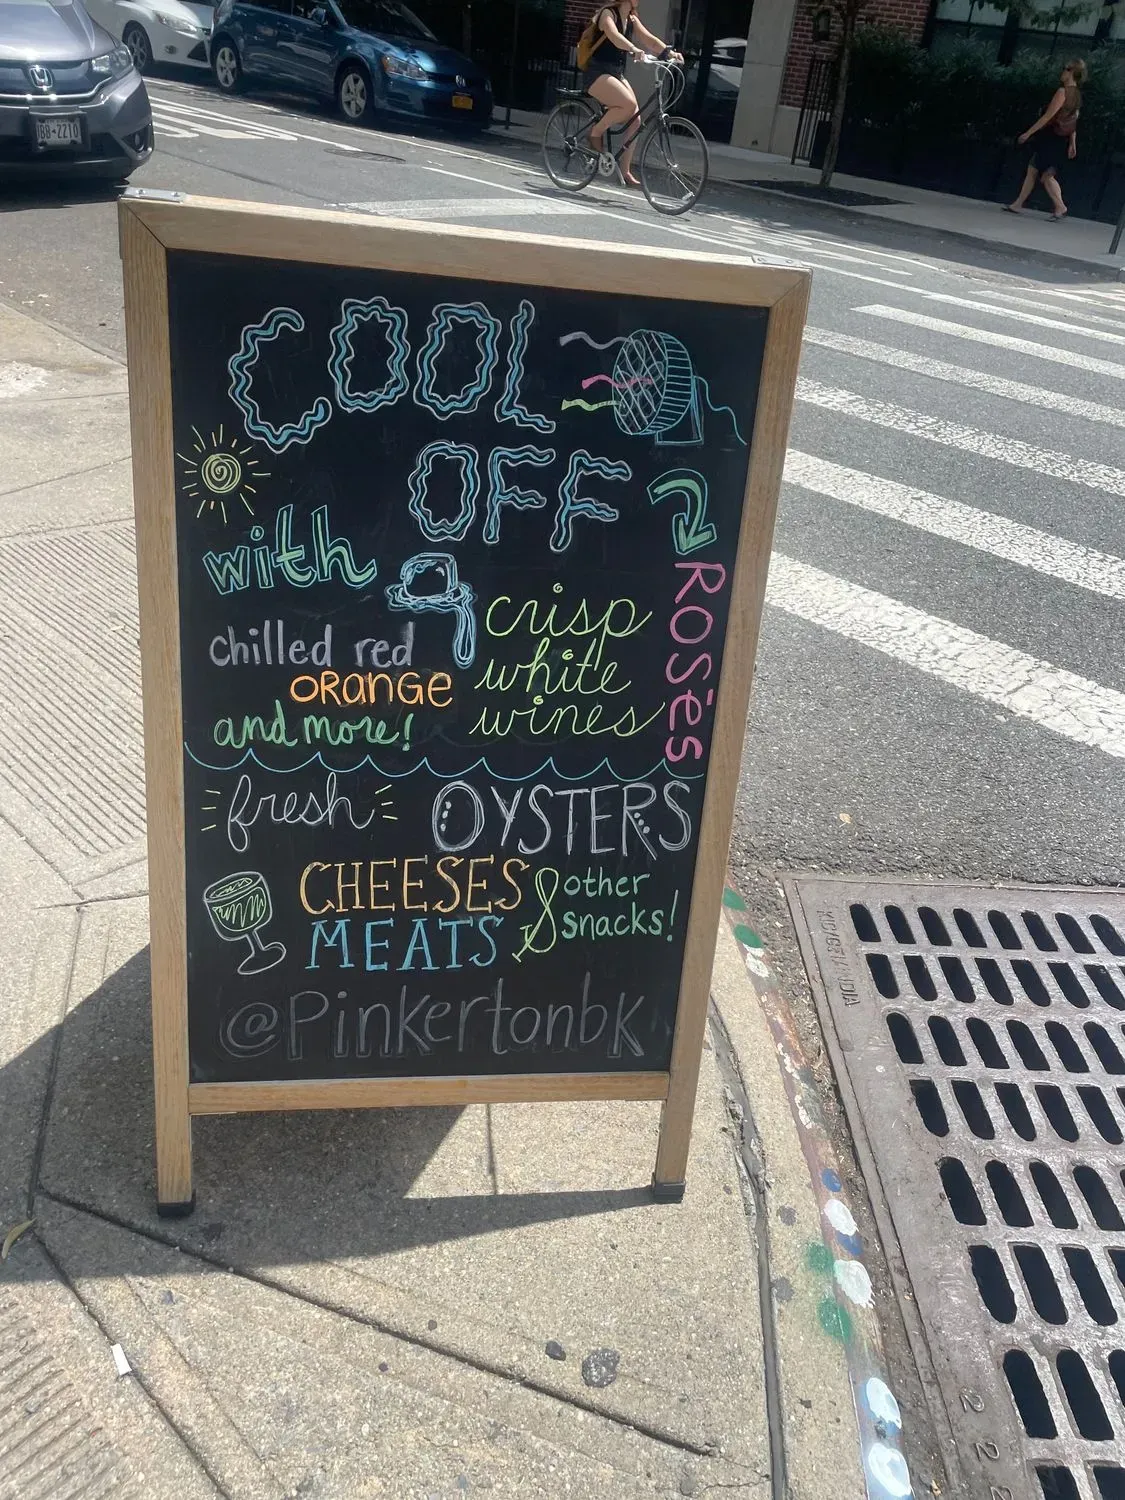 COOL
OFF
with
chilled red
ORANGE
and more!
crisp
white
wines
ROSēS
fresh OYSTERS
CHEESES
MEATS
& other
snacks!
@Pinkertonbk